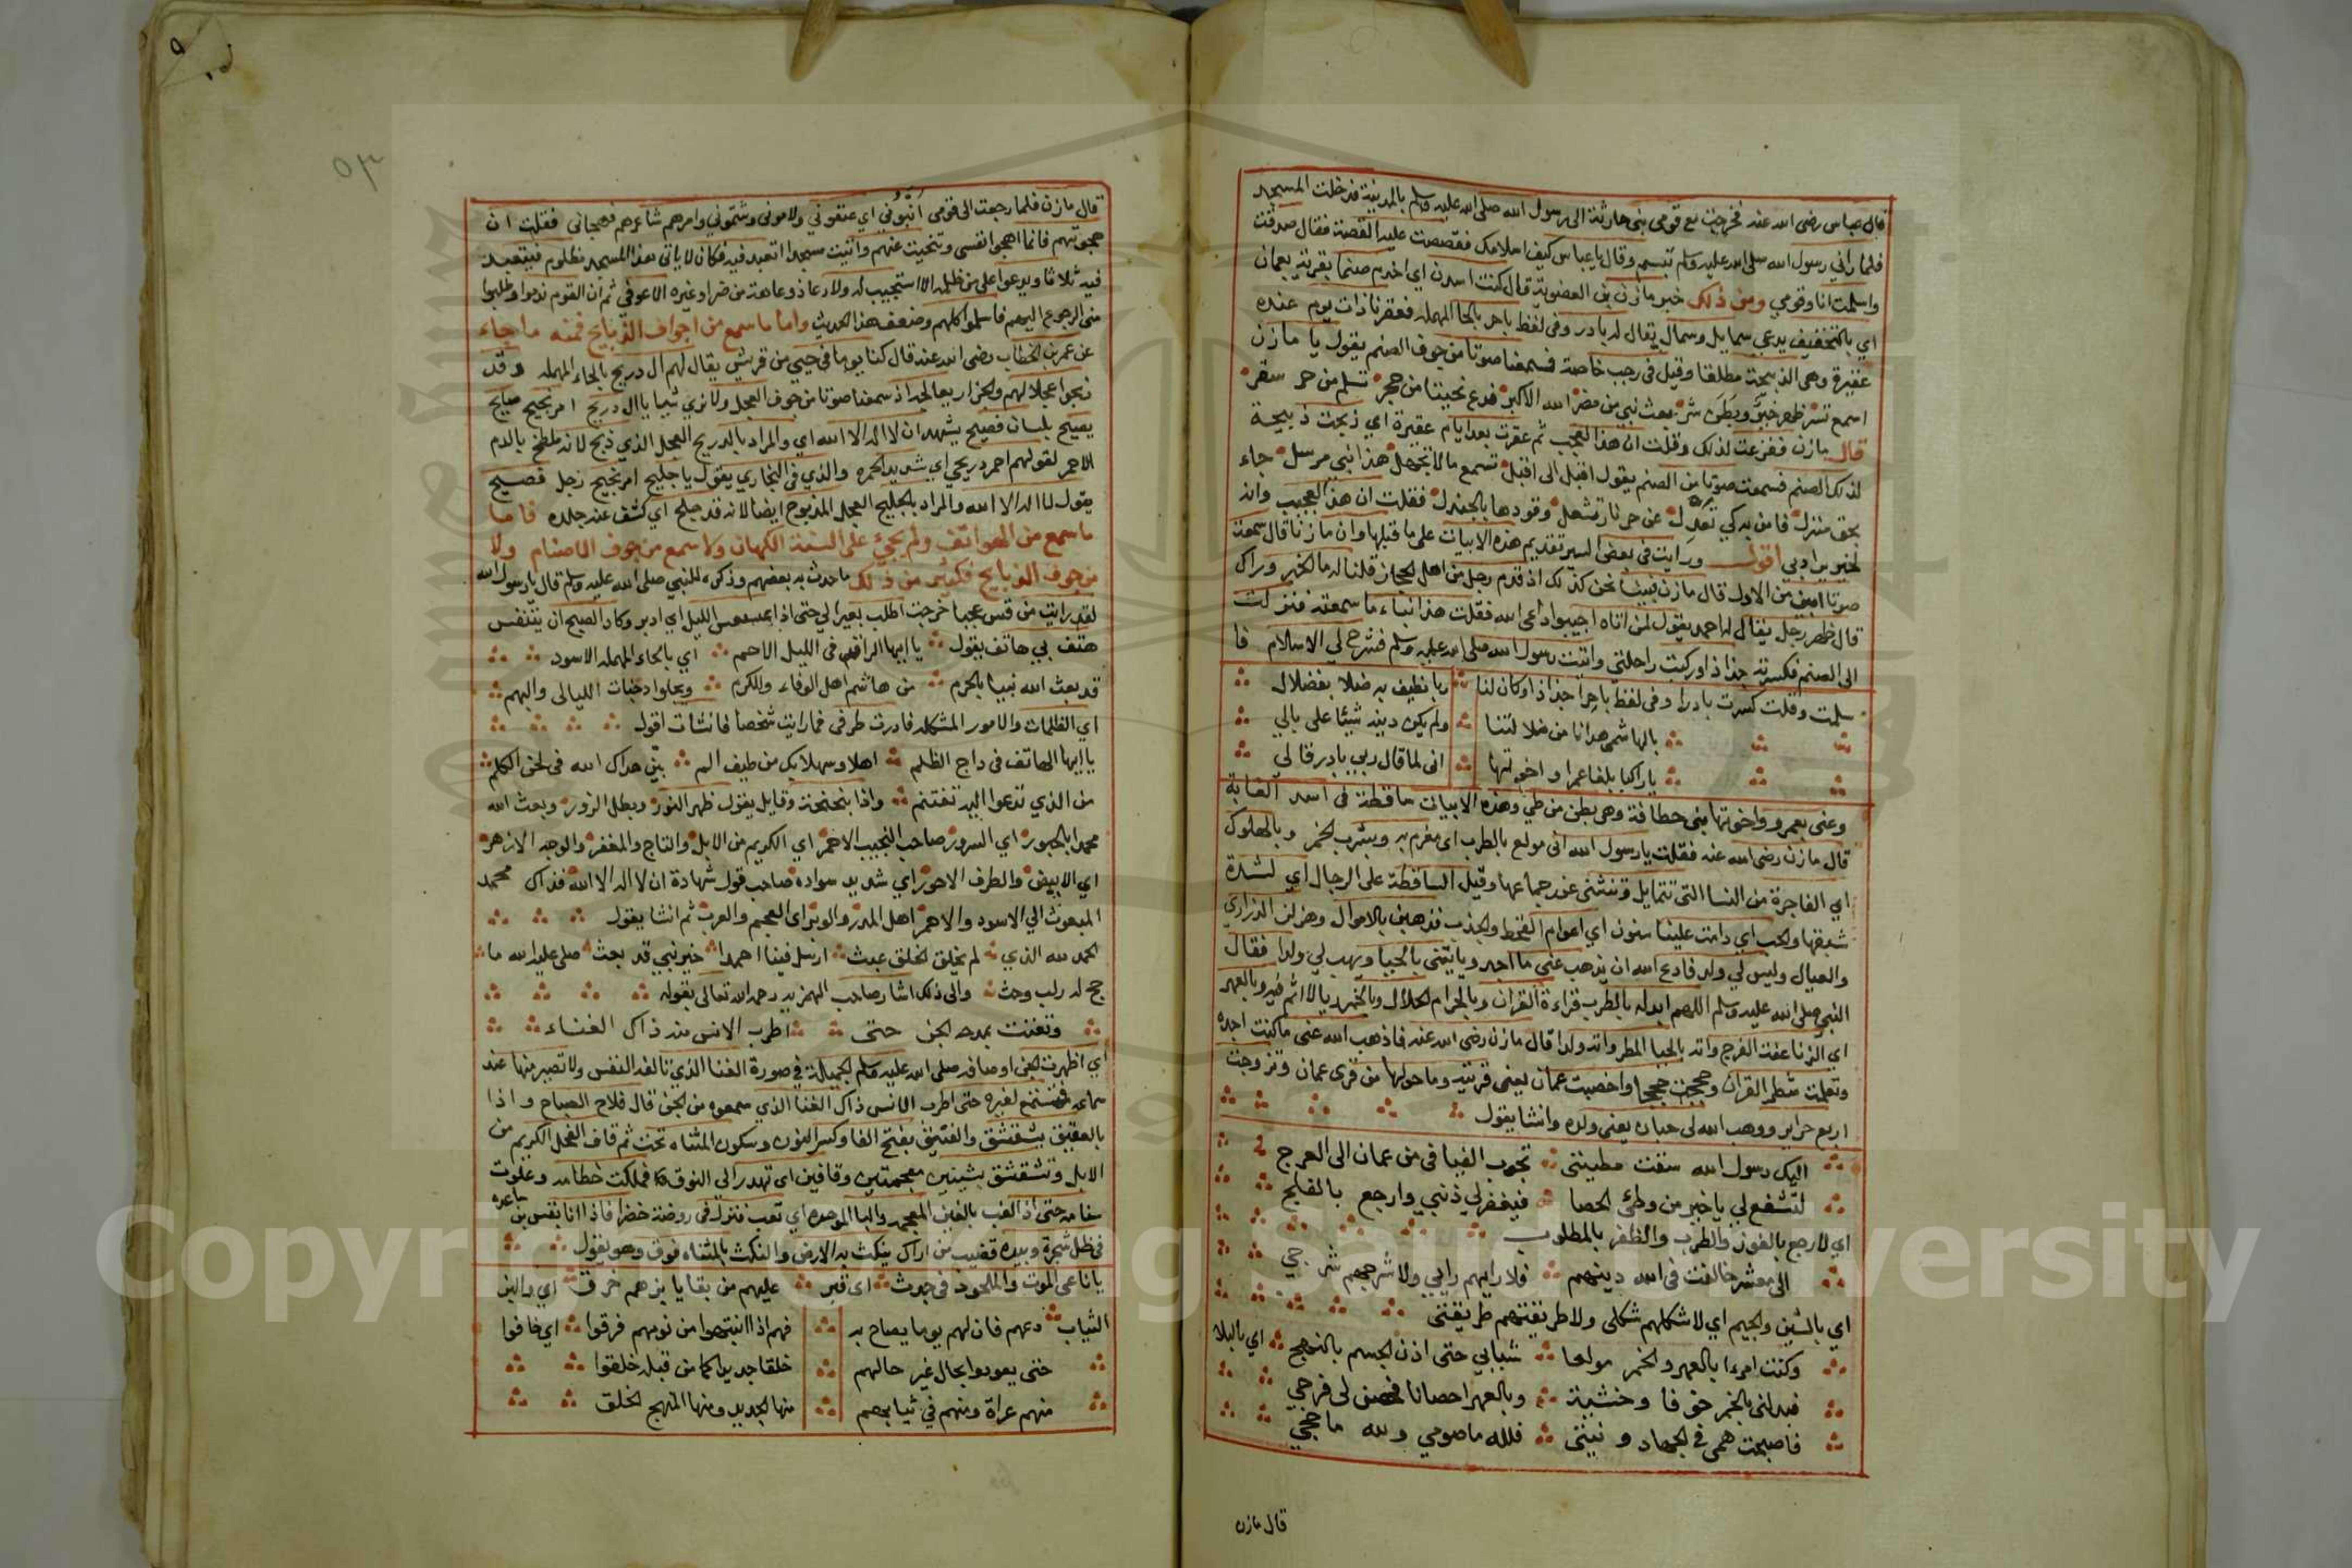 قال عباس رضى الله عنه فخرجت مع قومى بنى حارثة الى رسول الله صلى الله عليه وسلم بالمدينة فدخلت المسجد
فلما رانى رسول الله صلى الله عليه وسلم تبسم وقال يا عباس كيف اسلامك فقصصت عليه القصة فقال صدقت
واسلمت انا وقومي ومن ذلك خبر مازن بن الغضوبة قال كنت اسدن اى اخدم صنما بقرية بعمان
اي بالتخفيف يدعي سمايل وسمال يقال له بادر وفى لفظ باحر بالحا المهمله فعترنا ذات يوم عنده
عتيرة وهى الذبيحة مطلقا وقيل فى رجب خاصة فسمعنا صوتا من جوف الصنم يقول يا مازن
اسمع تسر ظهر خير وبطن شر بعث نبي من مضر بدين الله الاكبر فدع نحيتا من حجر تسلم من حر سقر
قال مازن ففزعت لذلك وقلت ان هذا لعجب ثم عترت بعد ايام عتيرة اي ذبحت ذبيحة
لذلك الصنم فسمعت صوتا من الصنم يقول اقبل الى اقبل تسمع ما لا تجهل هذا نبي مرسل جاء
بحق منزل فامن به كي تعدل عن حر نار تشعل وقودها بالجندل فقلت ان هذا لعجيب وانه
لخير يراد بي اقول ورايت فى بعض السير تقديم هذه الابيات على ما قبلها وان مازنا قال سمعت
صوتا ابين من الاول قال مازن فبينما نحن كذلك اذ قدم رجل من اهل الحجاز قلنا له ما الخبر وراك
قال ظهر رجل يقال له احمد يقول لمن اتاه اجيبوا داعى الله فقلت هذا نباء ما سمعته فنزلت
الى الصنم فكسرته جذاذا وركبت راحلتي واتيت رسول الله صلى الله عليه وسلم فشرح لي الاسلام فا
سلمت وقلت كسرت بادرا وفى لفظ باحرا جذاذا وكان لنا ربا نطيف به ضلا بضلال
بالهاشمى هدانا من ضلالتنا ولم يكن دينه شيئا على بالي
يا راكبا بلغا عمرا واخوتها انى لما قال ربي بادر قالي
وعنى بعمرو واخوتها بنى خطامة وهى بطن من طي وهذه الابيات ساقطة فى اسد الغابة
قال مازن رضى الله عنه فقلت يا رسول الله انى مولع بالطرب اى مغرم به وبشرب الخمر وبالهلوك
اي الفاجرة من النسا التى تتمايل وتنثنى عند جماعها وقيل الساقطة على الرجال اي لشدة
شبقها والحب اي دامت علينا سنون اي اعوام القحط والجدب فذهبن بالاموال وهزلن الذراري
والعيال وليس لي ولد فادع الله ان يذهب عني ما اجد وياتينى بالحيا ويهب لي ولدا فقال
النبي صلى الله عليه وسلم اللهم ابدله بالطرب قراءة القران وبالحرام الحلال وبالخمر ريا لا اثم فيه وبالعهر
اي الزنا عفت الفرج واته بالحيا المطر واته ولدا قال مازن رضى الله عنه فاذهب الله عنى ما كنت اجده
وتعلمت شطر القران وحججت حججا واخصبت عمان يعنى قريته وما حولها من قرى عمان وتزوجت
اربع حراير ووهب الله لى حبان يعنى ولده وانشا يقول
اليك رسول الله سقت مطيتى تجوب الفيافى من عمان الى العرج
لتشفع لي يا خير من وطئ الحصا فيغفر لي ذنبي وارجع بالفلج
اي لارجع بالفوز والطرب والظفر بالمطلوب
الى معشر خالفت فى الله دينهم فلا رايهم رايي ولا شرجهم شرجي
اي بالشين والجيم اي لا شكلهم شكلى ولا طريقتهم طريقتى
وكنت امرءا بالعهر والخمر مولعا شبابي حتى اذن الجسم بالنهج اي بالبلا
فبدلنى بالخمر خوفا وخشية وبالعهر احصانا فحصن لى فرجي
فاصبحت همى فى الجهاد ونيتى فلله ما صومي ولله ما حجي
قال مازن
قال مازن فلما رجعت الى قومى انبوني اي عنفوني ولامونى وشتموني وامرهم شاعرهم فهجانى فقلت ان
هجوتهم فانما اهجوا نفسى وتنحيت عنهم واتيت مسجدا اتعبد فيه فكان لا ياتى هذا المسجد مظلوم فيتعبد
فيه ثلاثا ويدعوا على من ظلمه الا استجيب له ولا دعا ذو عاهة من ضر او غيره الا عوفي ثم ان القوم ندموا وطلبوا
منى الرجوع اليهم فاسلموا كلهم وضعف هذا الحديث واما ما سمع من اجواف الذبايح فمنه ما جاء
عن عمر بن الخطاب رضى الله عنه قال كنا يوما فى حيي من قريش يقال لهم ال دريح بالحاء المهمله وقد
ذبحوا عجلا لهم والجزار يعالجه اذ سمعنا صوتا من جوف العجل ولا نري شيا يا ال دريح امر نجيح صايح
يصيح بلسان فصيح يشهد ان لا اله الا الله اي والمراد بالدريح العجل الذي ذبح لانه تلطخ بالدم
الاحمر لقولهم احمر دريحي اي شديد الحمره والذي فى البخاري يقول يا جليح امر نجيح رجل فصيح
يقول لا اله الا الله والمراد بالجليح العجل المذبوح ايضا لانه قد جلح اي كشف عنه جلده فاما
ما سمع من الهواتف ولم يجئ على السنة الكهان ولا سمع من جوف الاصنام ولا
من جوف الذبايح فكثير من ذلك ما حدث به بعضهم وذكره للنبي صلى الله عليه وسلم قال يا رسول الله
لقد رايت من قس عجبا خرجت اطلب بعيرا لي حتى اذا عسعس الليل اي ادبر وكاد الصبح ان يتنفس
هتف بي هاتف يقول يا ايها الراقد فى الليل الاحم اي بالحاء المهمله الاسود
قد بعث الله نبيا بالحرم من هاشم اهل الوفاء والكرم ويجلوا دجنات الليالى والبهم
اي الظلمات والامور المشكله فادرت طرفى فما رايت شخصا فانشات اقول
يا ايها الهاتف فى داج الظلم اهلا وسهلا بك من طيف الم بين هداك الله فى لحن الكلم
من الذي تدعوا اليه تغتنم واذا بنحنحة وقايل يقول ظهر النور وبطل الزور وبعث الله
محمدا بالحبور اي السرور صاحب النجيب الاحمر اي الكريم من الابل والتاج والمغفر والوجه الازهر
اي الابيض والطرف الاحور اي شديد سواده صاحب قول شهادة ان لا اله الا الله فذاك محمد
المبعوث الي الاسود والاحمر اهل المدر والوبر اى العجم والعرب ثم انشا يقول
الحمد لله الذي لم يخلق الخلق عبث ارسل فينا احمدا خير نبي قد بعث صلى عليه الله ما
حج له ركب وحث والى ذلك اشار صاحب الهمزيه رحمه الله تعالى بقوله
وتغنت بمدحه الجن حتى اطرب الانس منه ذاك الغناء
اي اظهرت الجن اوصافه صلى الله عليه وسلم الجميلة في صورة الغنا الذي تالفه النفس ولا تصبر منها عند
سماعه فتستمع لغيره حتى اطرب الانس ذاك الغنا الذي سمعوه من الجن قال فلاح الصباح واذا
بالفنيق يشقشق والفنيق بفتح الفا وكسر النون وسكون المثناه تحت ثم قاف الفحل الكريم من
الابل وتشقشق بشينين معجمتين وقافين اى تهدر الي النوق فملكت خطامه وعلوت
سنامه حتى اذا لغب بالغين المعجمه والبا الموحده اي تعب فنزل فى روضة خضرا فاذا انا بقس بن ساعده
فى ظل شجرة وبيده قضيب من اراك ينكث به الارض والنكث بالمثناه فوق وهو يقول
يا ناعى الموت والملحود فى جدث اى قبر عليهم من بقايا بزهم خرق اي والبز
الثياب دعهم فان لهم يوما يصاح به فهم اذا انتبهوا من نومهم فرقوا اي خافوا
حتى يعودوا بحال غير حالهم خلقا جديدا كما من قبله خلقوا
منهم عراة ومنهم في ثيابهم منها الجديد ومنها المنهج الخلق
٥٣
Copyright © King Saud University